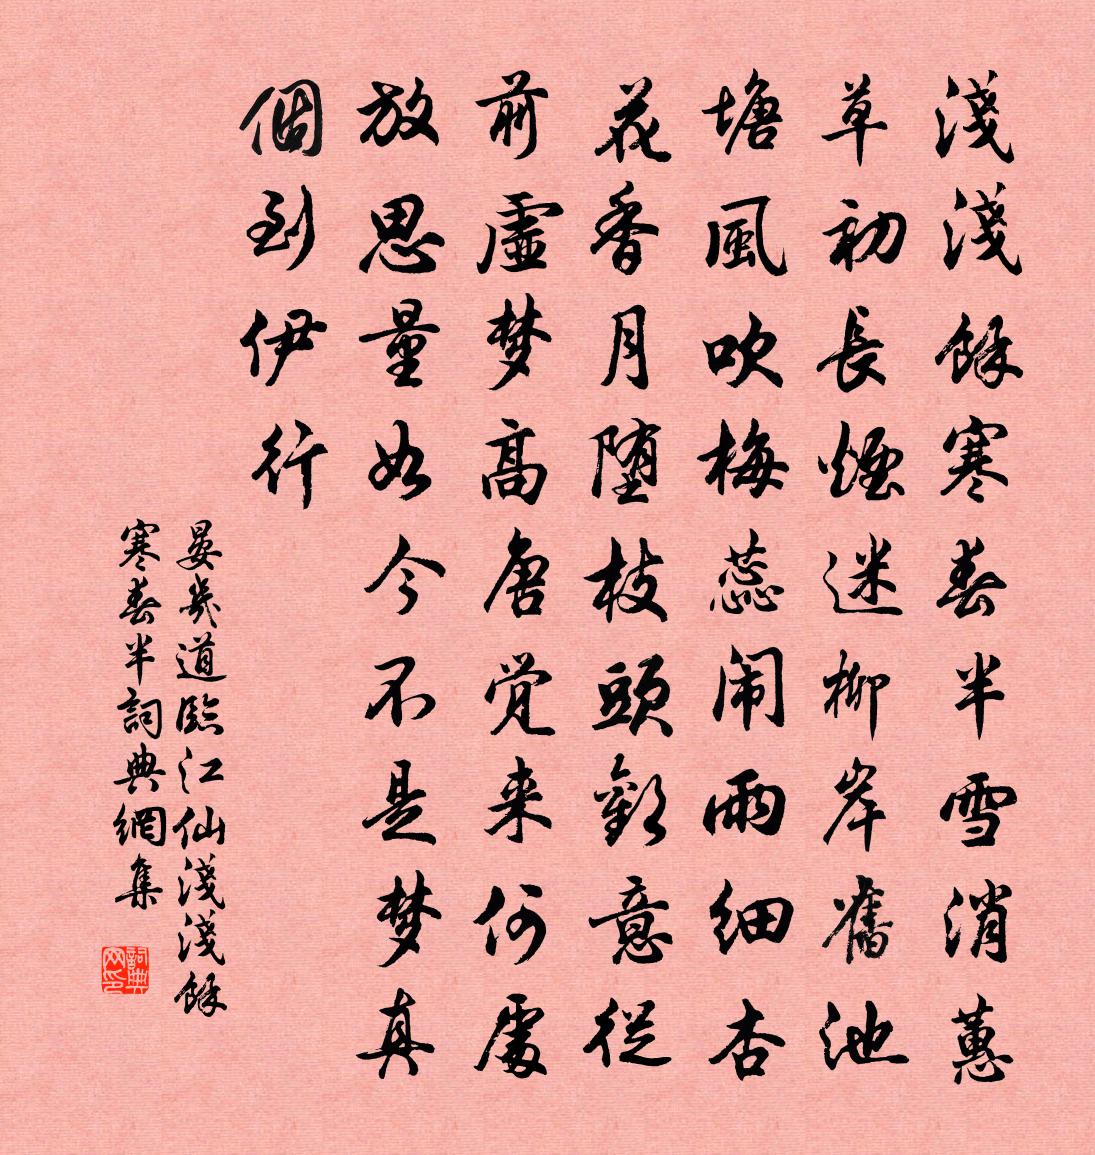 淺淺餘寒春半雪消蕙
草初長煙迷柳岸舊池
塘風吹梅蕊闹雨細杏
花香月堕枝頭歡意從
前虛梦高唐觉来何處
放思量如今不是梦真
個到伊行
晏幾道臨江仙淺淺餘
寒春半詞典網集
詞典
网印